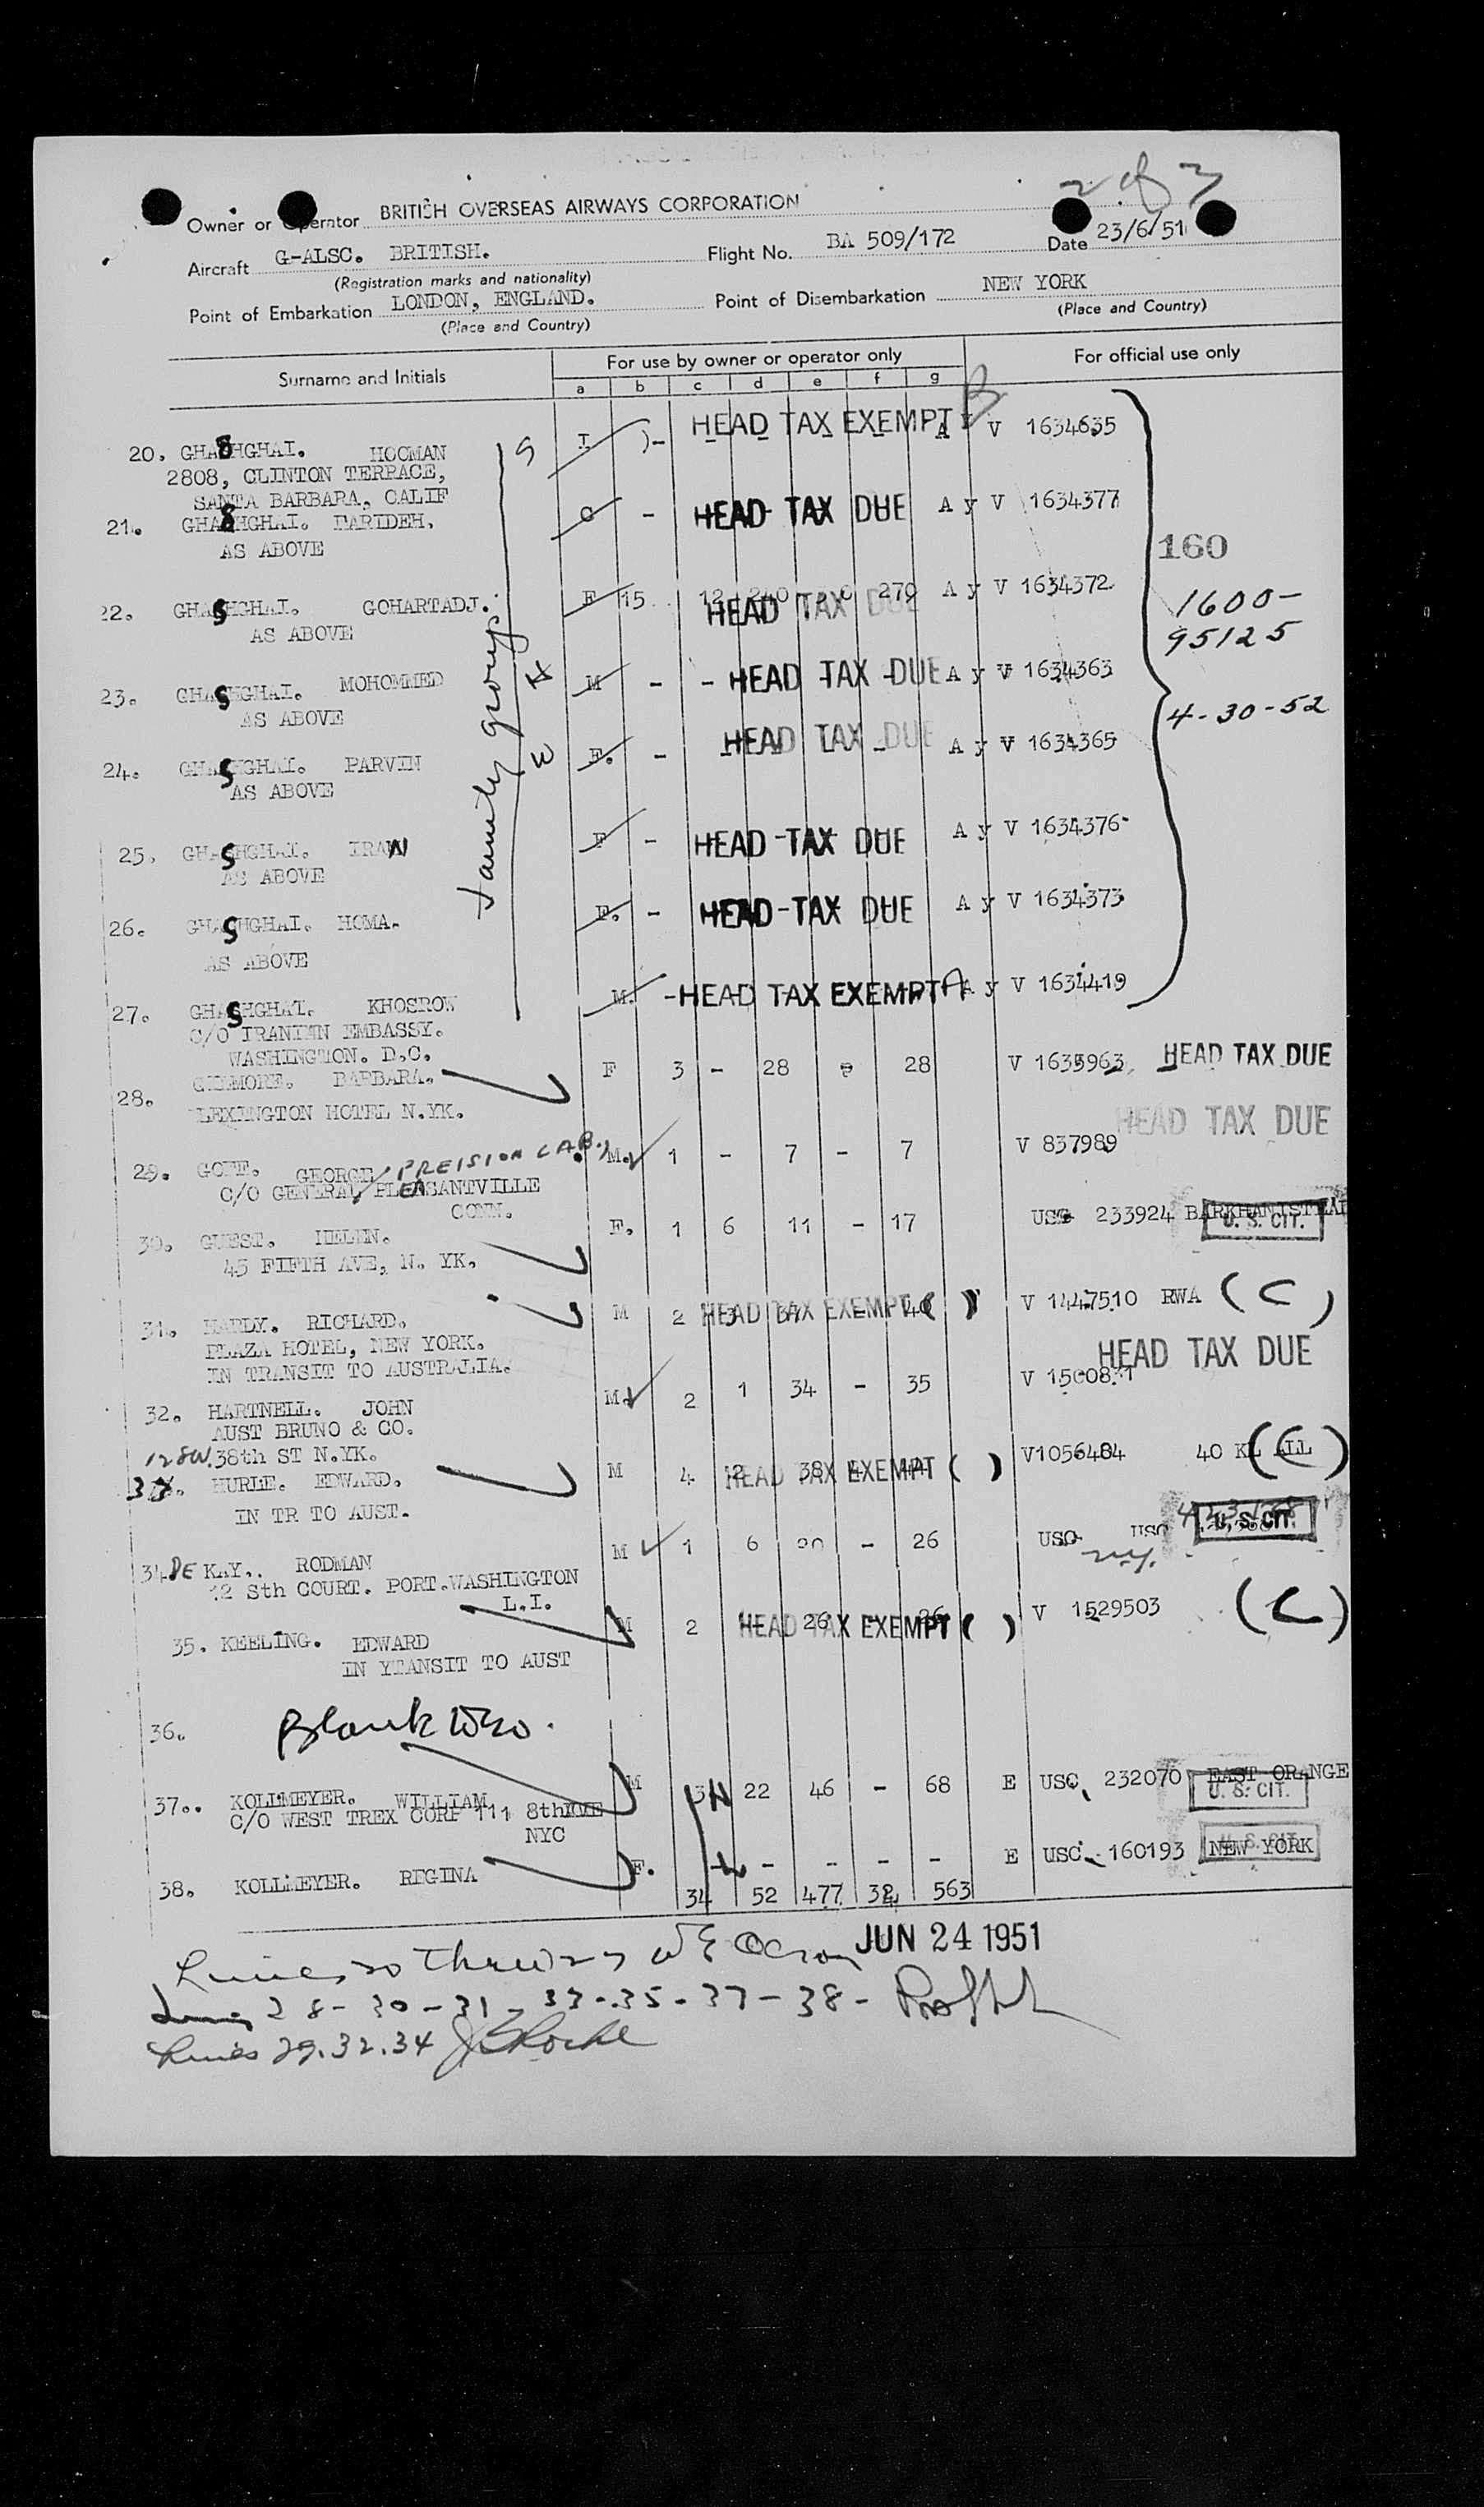 2 of 3
Owner or Operator BRITISH OVERSEAS AIRWAYS CORPORATION
Aircraft G-ALSC. BRITISH. Flight No. BA 509/172 Date 23/6/51
(Registration marks and nationality)
Point of Embarkation LONDON, ENGLAND. Point of Disembarkation NEW YORK
(Place and Country) (Place and Country)
Surname and Initials For use by owner or operator only For official use only
a b c d e f g
20. GHASHGHAI. HOOMAN I HEAD TAX EXEMPT V 1634635
2808, CLINTON TERRACE,
SANTA BARBARA, CALIF
21. GHASHGHAI. FARIDEH. C - HEAD TAX DUE A y V 1634377
AS ABOVE
160
22. GHASHGHAI. GOHARTADJ. F 15 12 240 270 A y V 1634372
HEAD TAX DUE
AS ABOVE
1600-
95125
23. GHASHGHAI. MOHOMMED M - - HEAD TAX DUE A y V 1634363
AS ABOVE
4-30-52
24. GHASHGHAI. PARVIN F. - HEAD TAX DUE A y V 1634365
AS ABOVE
family group
25. GHASHGHAI. IRAN F - HEAD TAX DUE A y V 1634376
AS ABOVE
26. GHASHGHAI. HOMA. F. - HEAD TAX DUE A y V 1634373
AS ABOVE
27. GHASHGHAI. KHOSROW M. - HEAD TAX EXEMPT A y V 1634419
C/O IRANIAN EMBASSY.
WASHINGTON. D.C.
28. GILMORE. BARBARA. F 3 - 28 28 V 1635963 HEAD TAX DUE
LEXINGTON HOTEL N.YK.
HEAD TAX DUE
29. GOFF. GEORGE PREISION LAB. M. 1 - 7 - 7 V 837989
C/O GENERAL PLEASANTVILLE
CONN.
30. GUEST. HELEN. F. 1 6 11 - 17 USC 233924 U. S. CIT.
45 FIFTH AVE, N. YK.
31. HARDY. RICHARD. M 2 3 37 - 40 HEAD TAX EXEMPT ( ) V 1447510 RWA (C)
PLAZA HOTEL, NEW YORK.
IN TRANSIT TO AUSTRALIA.
HEAD TAX DUE
32. HARTNELL. JOHN M. 2 1 34 - 35
AUST BRUNO & CO.
128W. 38th ST N.YK.
33. HURLE. EDWARD. M 4 2 38 HEAD TAX EXEMPT ( ) V1056484 40 KL ALL (C)
IN TR TO AUST.
34. DE KAY.. RODMAN M 1 6 20 - 26 USC USC U. S. CIT.
12 Sth COURT. PORT.WASHINGTON
L.I.
35. KEELING. EDWARD M 2 - 26 - 26 HEAD TAX EXEMPT ( ) V 1529503 (C)
IN YTANSIT TO AUST
36. Blank
37.. KOLLMEYER. WILLIAM M 3 22 46 - 68 E USC 232070 EAST ORANGE
U. S. CIT.
C/O WEST TREX CORP 111 8th AVE
NYC
38. KOLLMEYER. REGINA F. - - - - E USC 160193 NEW YORK
34 52 477 563
JUN 24 1951
Lines 20 thru 27
Lines 28-30-31-33-35-37-38-
Lines 29.32.34